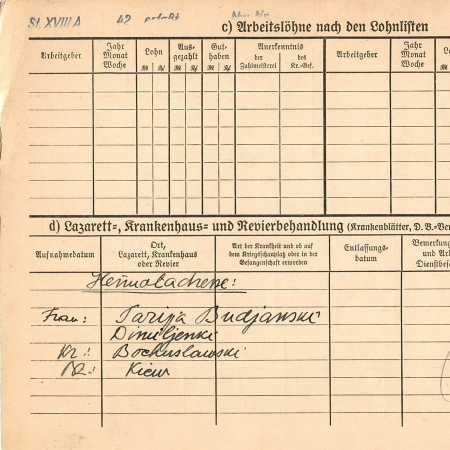 St. XVIII A 42
c) Arbeitslöhne nach den Lohnlisten
Arbeitgeber Jahr Monat Woche Lohn Ausgezahlt Guthaben Anerkenntnis der Zahlmeisterei des Kr.-Gef. Arbeitgeber Jahr Monat Woche
d) Lazarett-, Krankenhaus- und Revierbehandlung (Krankenblätter, D. B.-Ver
Aufnahmedatum Ort, Lazarett, Krankenhaus oder Revier Art der Krankheit und ob auf dem Kriegsschauplatz oder in der Gefangenschaft erworben Entlassungsdatum Bemerkung und Art Dienstbesch
Heimatadresse:
Frau: Tarija Budjanski
Dimitjenki
Kr.: Bochuslawski
Bz.: Kiew